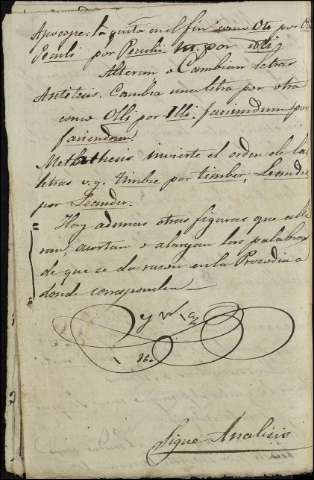 Apocope. la quita en el fin como Oti por
Peculi por Peculii
Alteran o Cambian letras
Antitesis. Cambia una letra por otra
como Olli por Illi, faciundum por
faciendum.
Methathesis invierte el orden de las
letras v. g. Timbre por timber, Leandre
por Leander.
Hay ademas otras figuras que alte
ran, acortan o alargan las palabras
de que se da razon en la Prosodia a
donde corresponden
Sigue Analisis